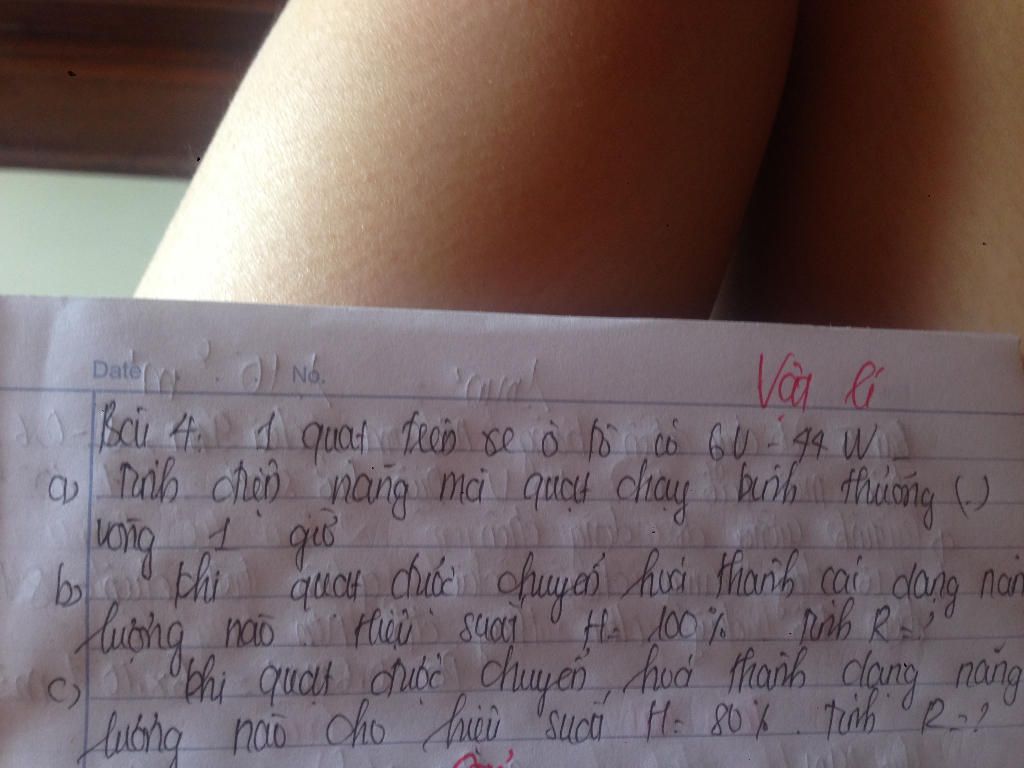 Date No.
Vật lí
Bài 4: 1 quạt trên xe ô tô có 6V - 44 W
a) Tính điện năng mà quạt chạy bình thường (.)
vòng 1 giờ
b) khi quạt được chuyển hoá thành các dạng năn
lượng nào. Hiệu suất H = 100 % Tính R = ?
c) khi quạt được chuyển hoá thành dạng năng
lượng nào cho hiệu suất H = 80 % Tính R = ?